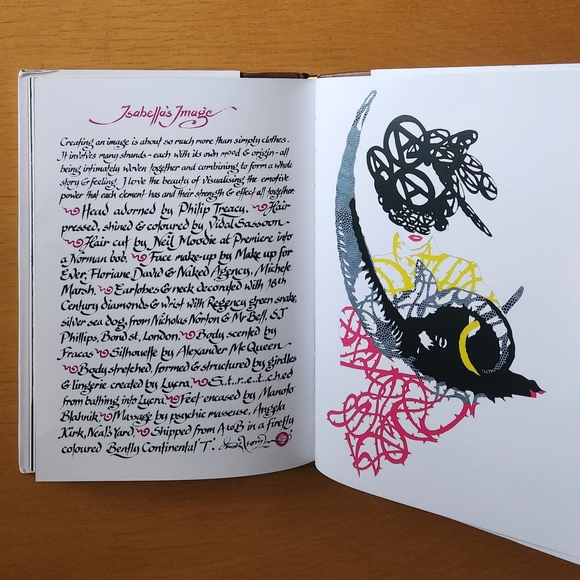 Isabella's Image
Creating an image is about so much more than simply clothes.
It involves many strands - each with its own mood & origin - all
being intimately woven together and combining to form a whole
story & feeling. I love the beauty of visualising the emotive
power that each element has and their strength & effect all together.
Head adorned by Philip Treacy. Hair
pressed, shined & coloured by Vidal Sassoon
Hair cut by Neil Moodie at Premiere into
a Norman bob. Face make-up by Make up for
Ever, Floriane David & Naked Agency, Michele
Marsh. Earlobes & neck decorated with 18th
Century diamonds & wrist with Regency green snake,
silver sea dog, from Nicholas Norton & Mr Bell, SJ
Phillips, Bond st, London. Body scented by
Fracas Silhouette by Alexander McQueen
Body stretched, formed & structured by girdles
& lingerie created by Lycra. S.t.r.e.t.c.h.ed
from bathing into Lycra. Feet encased by Manolo
Blahnik Massage by psychic masseuse, Angela
Kirk, Neal's Yard. Shipped from A to B in a firefly
coloured Bently Continental 'T'.